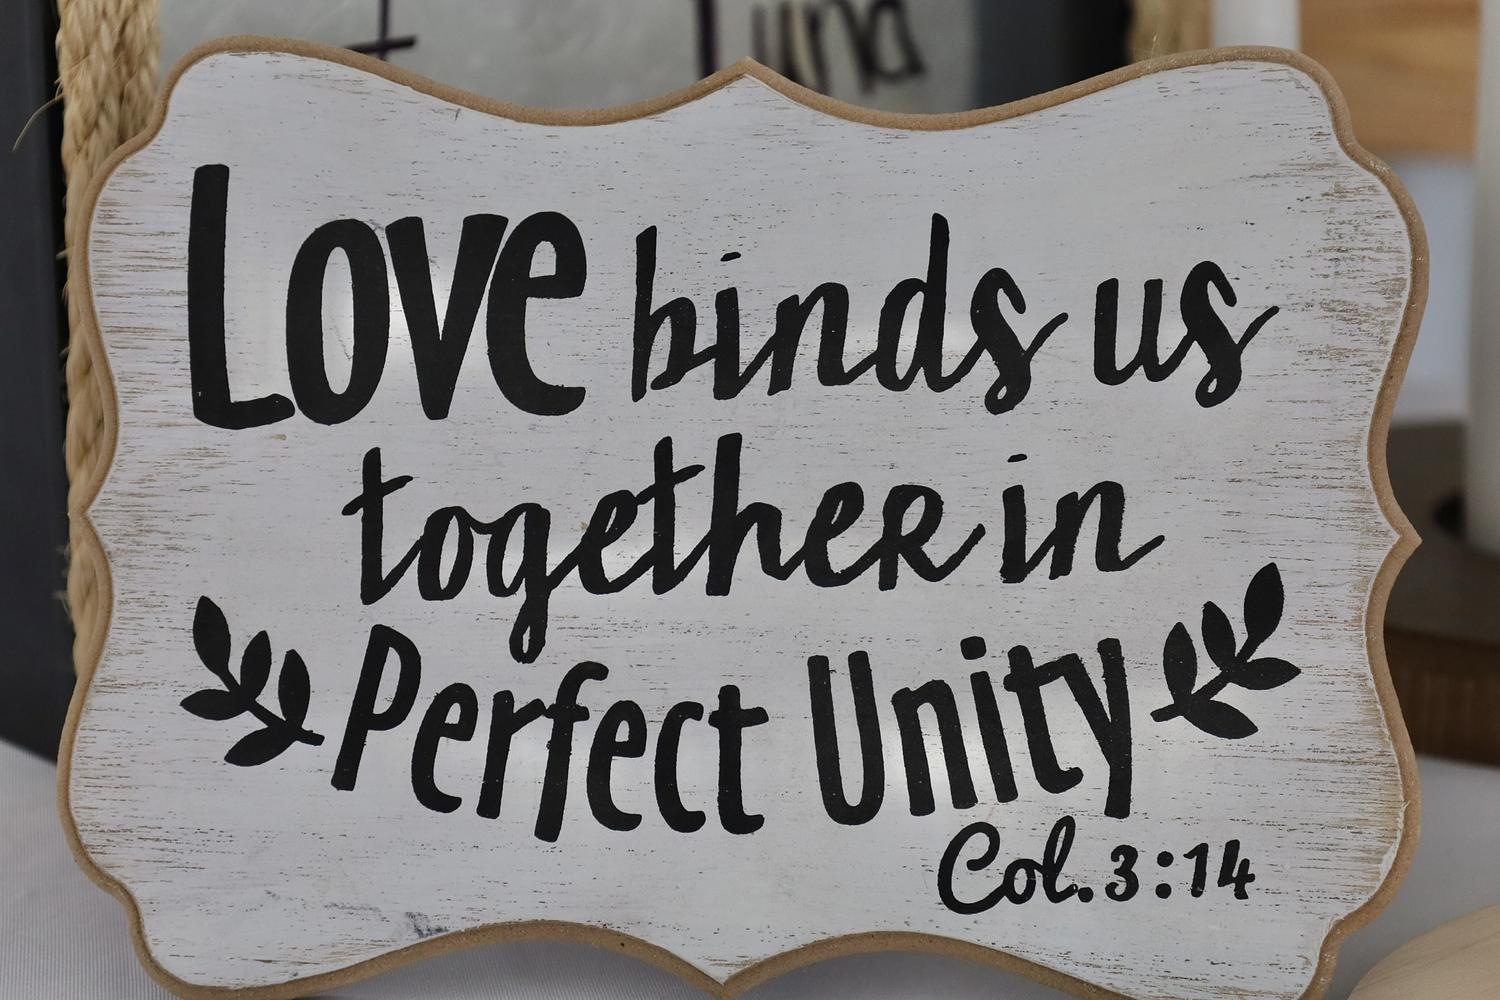 Love binds us
together in
Perfect Unity
Col. 3:14